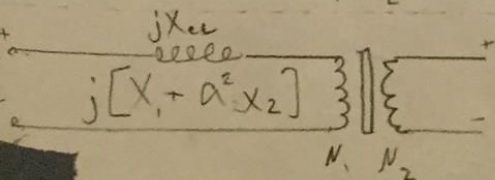 jXeq
+ +
j[X₁ + a²X₂]
- -
N₁ N₂